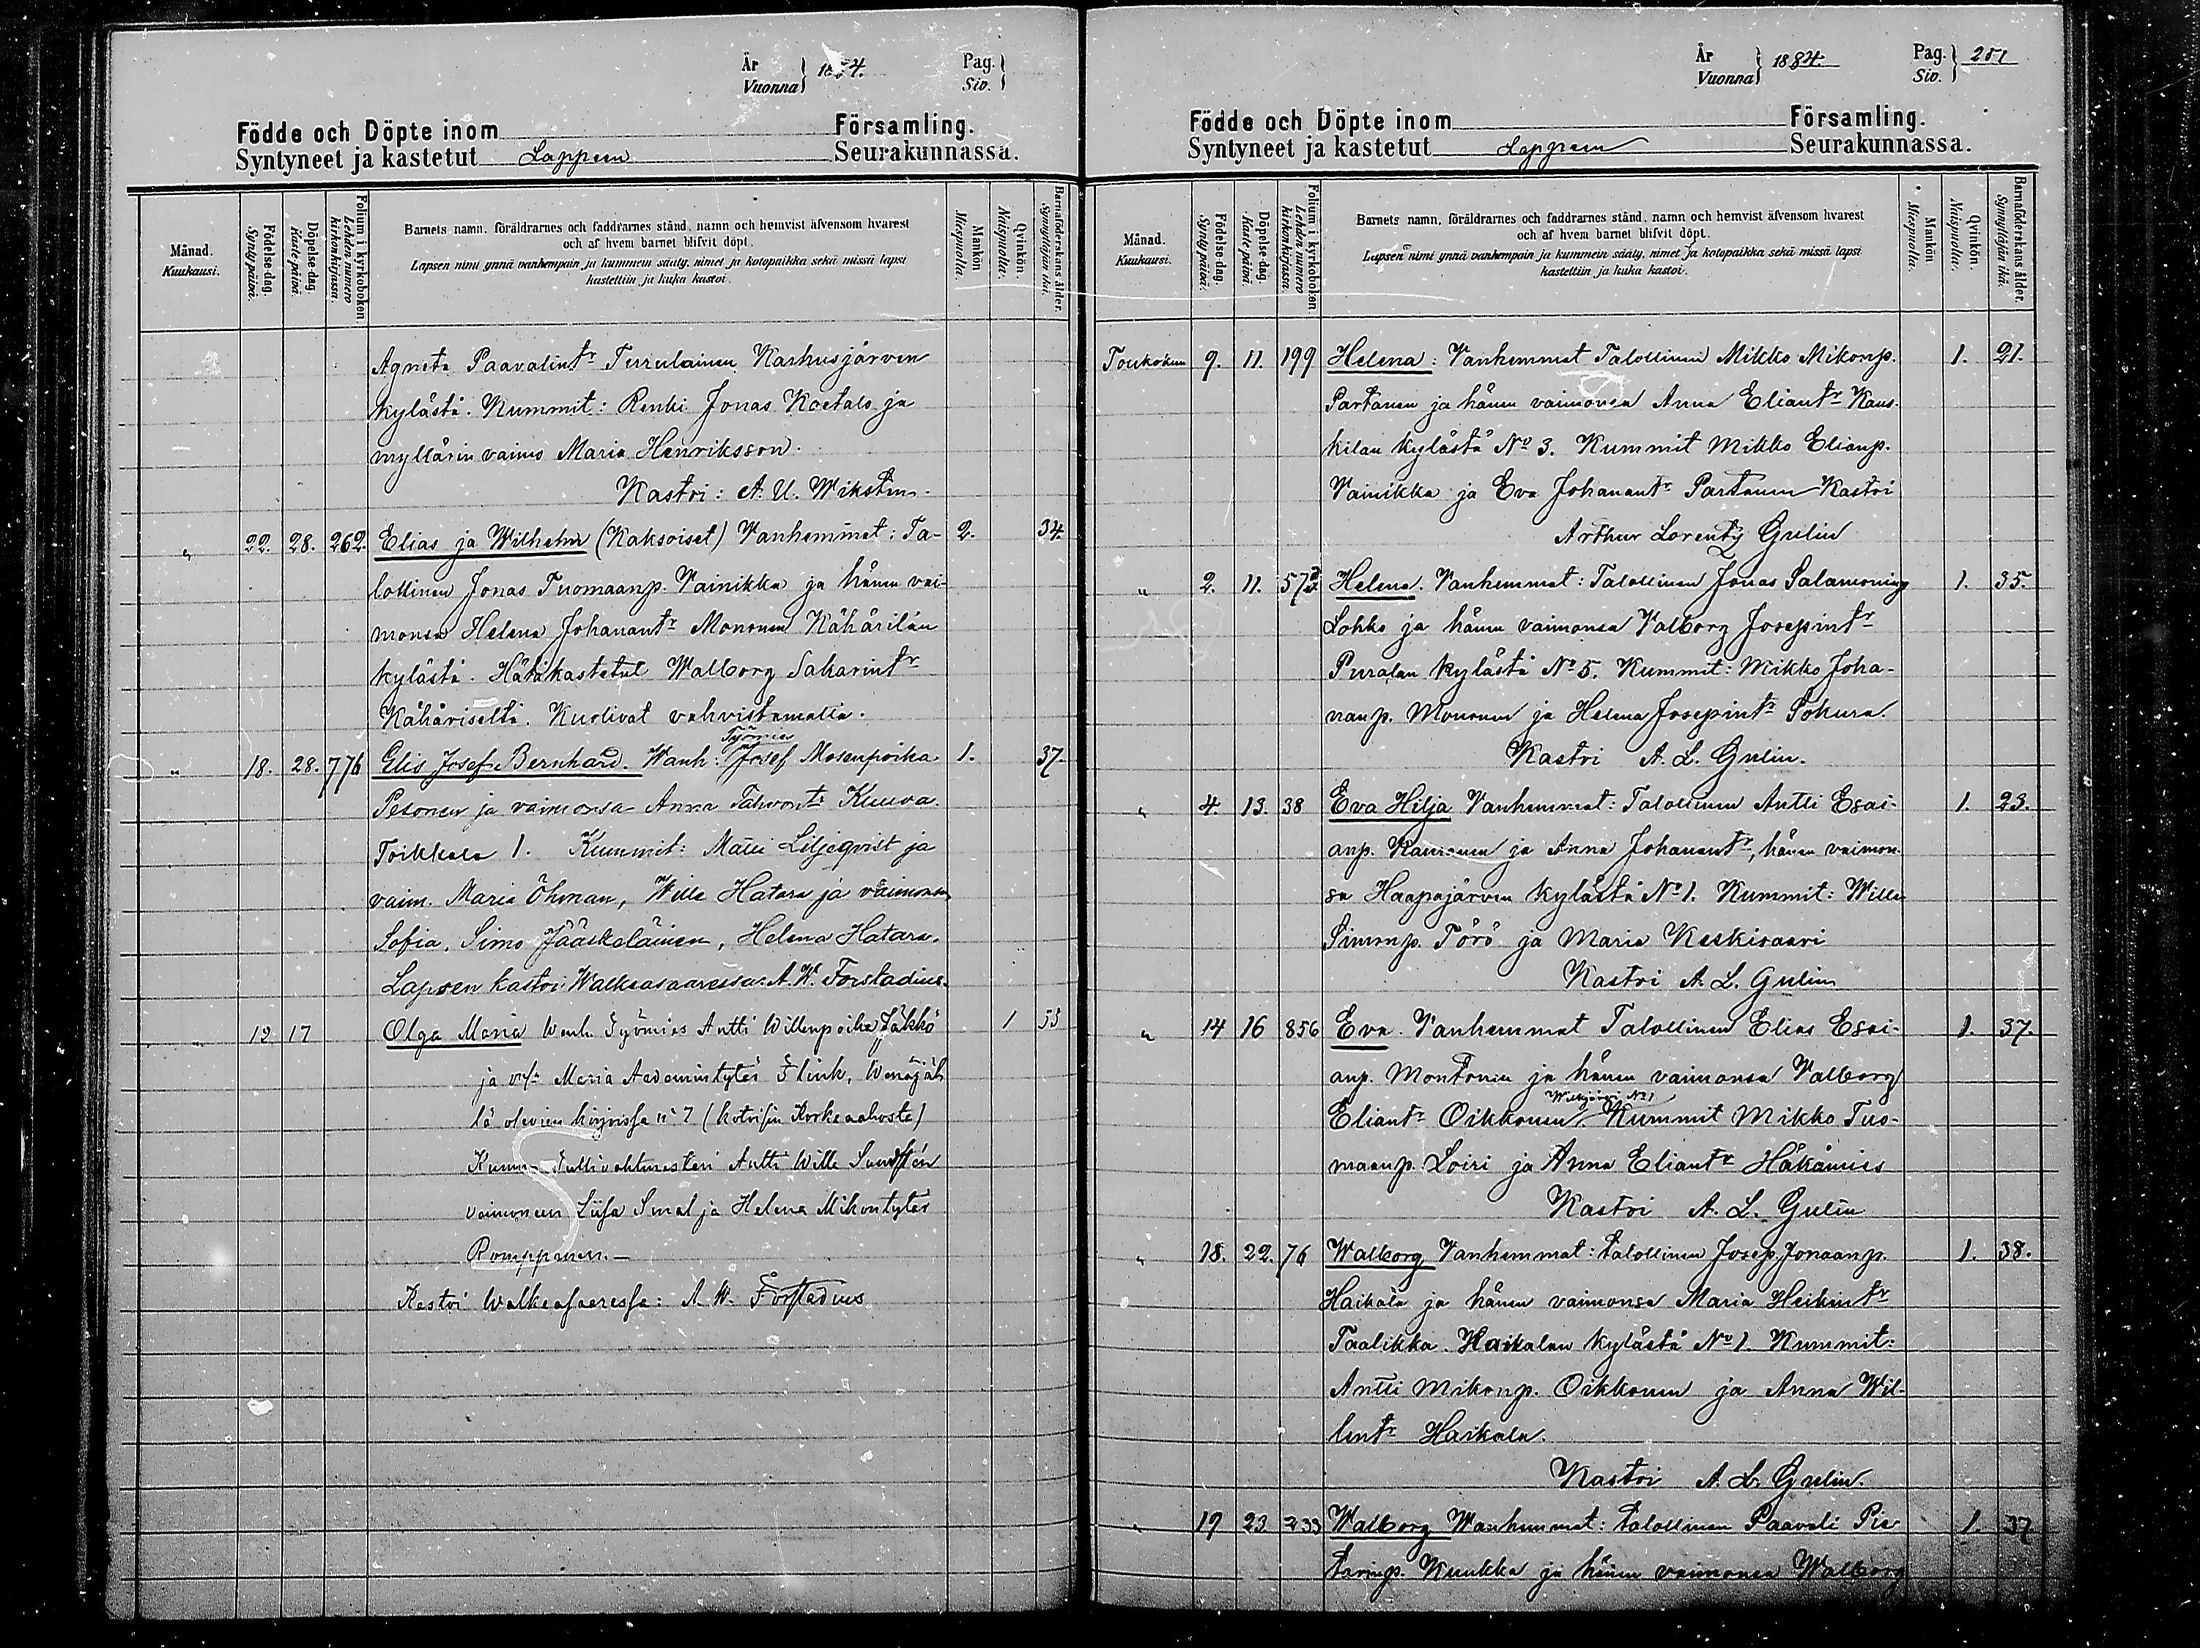 År
Vuonna } 1884.
Pag.
Siv. }
Födde och Döpte inom Församling.
Syntyneet ja kastetut Lappeen Seurakunnassa.
Månad.
Kuukausi.
Födelse-dag.
Syntypäivä.
Döpelse-dag.
Kastepäivä.
Folium i kyrkoboken.
Lehden numero kirkonkirjassa.
Barnets namn, föräldrarnes och faddrarnes stånd, namn och hemvist äfvensom hvarest
och af hvem barnet blifvit döpt.
Lapsen nimi ynnä vanhempain ja kummein sääty, nimet ja kotopaikka sekä missä lapsi
kastettiin ja kuka kastoi.
Mankön
Miespuolia.
Qvinkön.
Naispuolia.
Barnaföderskans ålder.
Synnyttäjän ikä.
Agneta Paavalintr Terrulainen Karhusjärven
kylästä. Kummit: Renki Jonas Koetalo ja
myllärin vaimo Maria Henriksson.
Kastoi: A. U. Wikstén.
" 22. 28. 262. Elias ja Wilhelm (Kaksoiset) Vanhemmat: Ta- 2. 34.
lollinen Jonas Tuomaanp. Vainikka ja hänen vai-
monsa Helena Johanantr Mononen Kähärilän
kylästä. Hätäkastetut Walborg Sakarintr
Kähäriseltä. Kuolivat vahvistamatta.
Työmies
" 18. 28. 776 Elis Josef Bernhard. Wanh: Josef Mosenpoika 1. 37.
Pesonen ja vaimonsa Anna Tahvontr Kuuva.
Toikkala 1. Kummit: Matti Liljeqvist ja
vaim. Maria Öhman, Wille Hatara ja vaimonsa
Sofia, Simo Jääskeläinen, Helena Hatara.
Lapsen kastoi Walkeasaaressa: A. W. Forstadius.
" 12 17 Olga Maria Wanh. Työmies Antti Willenpoika Jäkkö 1 33
ja Maria Aadamintytär Flink,
olevien kirjoissa n:o 7 (kotoisin Korkeaaholta)
Kumm. Tullivahtmestari Antti Wille Sundstén
vaimoneen Liisa Smal ja Helena Mikontytär
Romppanen.—
Kastoi Walkeasaaressa: A. W. Forstadius
År
Vuonna } 1884.
Pag.
Siv. } 251
Födde och Döpte inom Församling.
Syntyneet ja kastetut Lappeen Seurakunnassa.
Månad.
Kuukausi.
Födelse-dag.
Syntypäivä.
Döpelse-dag.
Kastepäivä.
Folium i kyrkoboken
Lehden numero kirkonkirjassa.
Barnets namn, föräldrarnes och faddrarnes stånd, namn och hemvist äfvensom hvarest
och af hvem barnet blifvit döpt.
Lapsen nimi ynnä vanhempain ja kummein sääty, nimet ja kotopaikka sekä missä lapsi
kastettiin ja kuka kastoi.
Mankön
Miespuolia.
Qvinkön.
Naispuolia.
Barnaföderskans ålder.
Synnyttäjän ikä.
Toukokuu 9. 11. 199 Helena: Vanhemmat Talollinen Mikko Mikonp. 1. 21.
Partanen ja hänen vaimonsa Anna Eliantr Kaus-
kilan kylästä No 3. Kummit Mikko Elianp.
Vainikka ja Eva Johanantr Partanen Kastoi
Arthur Lorentz Gulin
" 2. 11. 572 Helena. Vanhemmat: Talollinen Jonas Salamoninp 1. 35.
Lohko ja hänen vaimonsa Valborg Josepintr
Puralan kylästä No 5. Kummit: Mikko Joha-
nanp. Mononen ja Helena Josepintr Sokura.
Kastoi A. L. Gulin.
" 4. 13. 38 Eva Hilja Vanhemmat: Talollinen Antti Esai- 1. 23.
anp. Kauranen ja Anna Johanantr, hänen vaimon-
sa Haapajärven kylästä No 1. Kummit: Wille
Simonp. Törö ja Maria Keskisaari
Kastoi A. L. Gulin
" 14 16 856 Eva. Vanhemmat Talollinen Elias Esai- 1. 37.
anp. Montonen ja hänen vaimonsa Valborg
Wilkjärvi No 1
Eliantr Oikkonen. Kummit Mikko Tuo-
maanp. Loiri ja Anna Eliantr Häkämies
Kastoi A. L. Gulin
" 18. 22. 76 Walborg Vanhemmat: talollinen Josep Jonaanp. 1. 38.
Haikala ja hänen vaimonsa Maria Heikintr
Taalikka. Haikalan kylästä No 1. Kummit:
Antti Mikonp. Oikkonen ja Anna Wil-
lentr Haikala.
Kastoi A. L. Gulin.
" 19 23 233 Walborg Wanhemmat: talollinen Paavali Pie- 1. 37
tarinp. Kuukka ja hänen vaimonsa Walborg